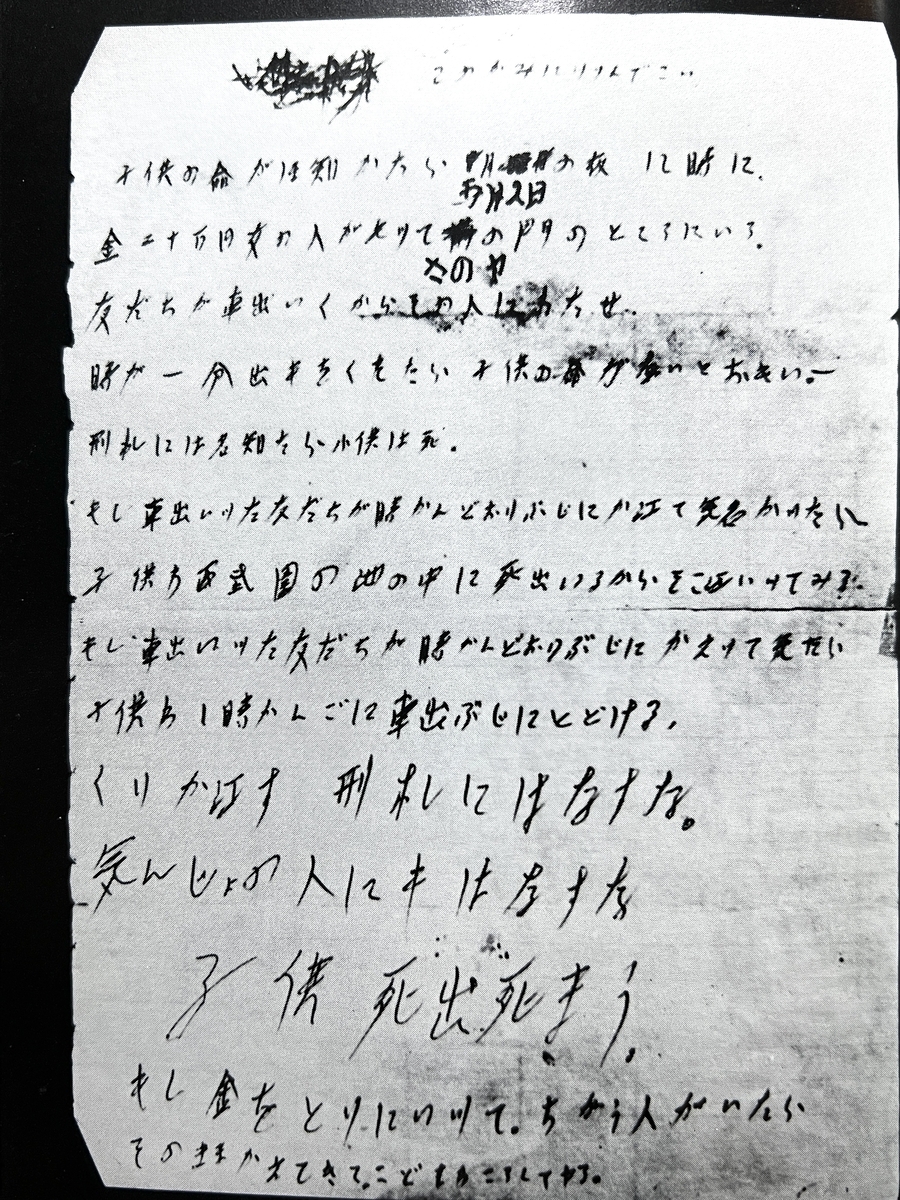 このかみにツツんでこい
子供の命がほ知かたら の夜12時に、
五月2日
金二十万円女の人がもツて の門のところにいろ。
さのヤ
友だちが車出いくからその人にわたせ。
時が一分出もをくれたら子供の命がないとおもい。―
刑札には名知たら小供は死。
もし車出いツた友だちが時かんどおりぶじにか江て気名かツたら
子供わ西武園の池の中に死出いるからそこ江いツてみろ。
もし車出いツた友だちが時かんどおりぶじにかえツて気たら
子供わ1時かんごに車出ぶじにとどける、
くりか江す 刑札にはなすな。
気んじょの人にもはなすな
子供死出死まう。
もし金をとりにいツて。ちがう人がいたら
そのままかえてきて。こどもわころしてヤる。